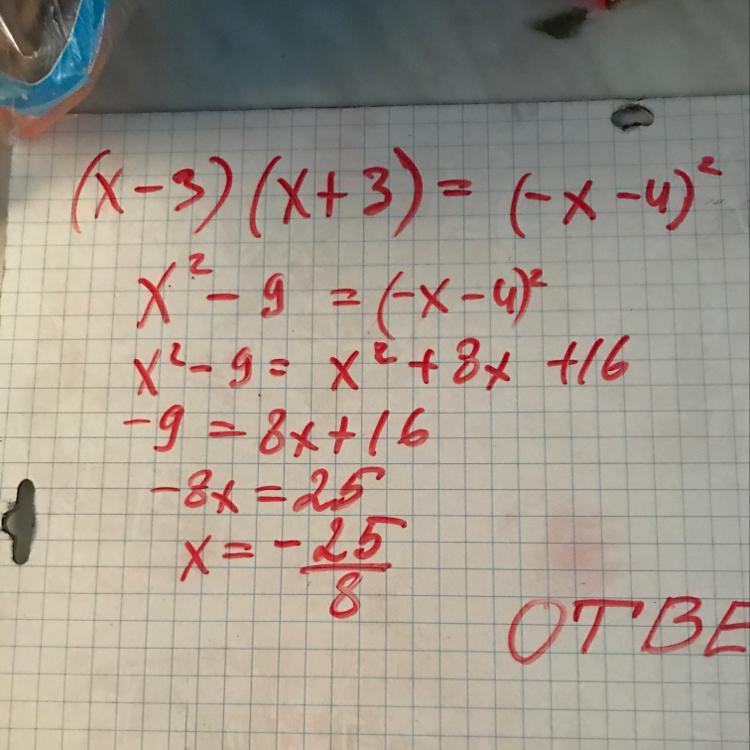 (x-3)(x+3) = (-x-4)²
x² - 9 = (-x-4)²
x² - 9 = x² + 8x + 16
-9 = 8x + 16
-8x = 25
x = -25/8
ОТВЕ